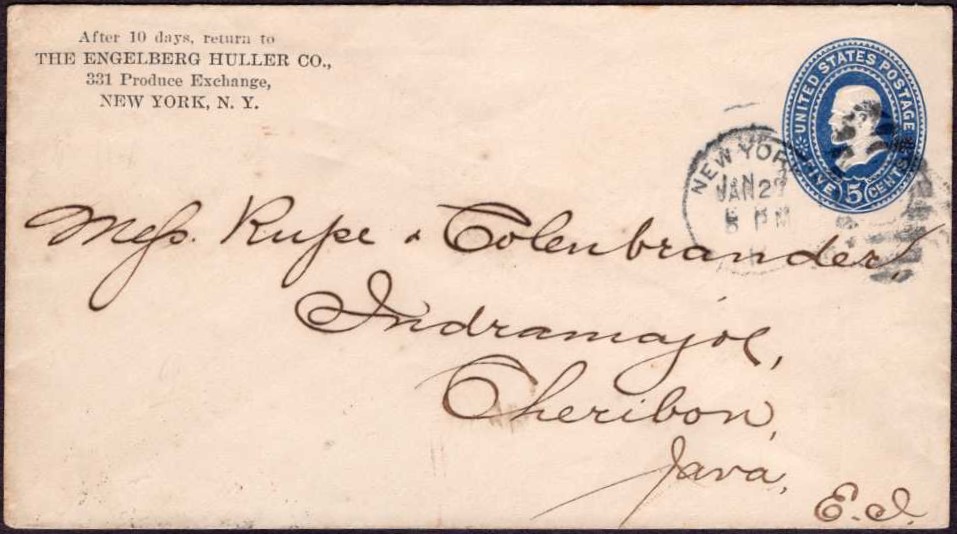 After 10 days, return to
THE ENGELBERG HULLER CO.,
331 Produce Exchange,
NEW YORK, N. Y.
UNITED STATES POSTAGE
FIVE 5 CENTS
NEW YORK
JAN 29
5 PM
Mess. Rupe & Colenbrander,
Indramajoe,
Cheribon,
Java,
E.I.